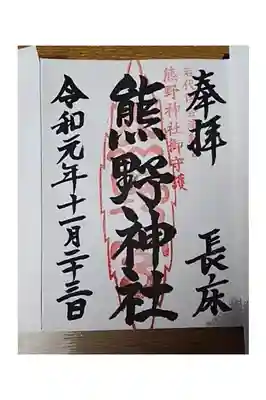 奉拝
長床
熊野神社御守護
熊野神社
令和元年十一月二十三日